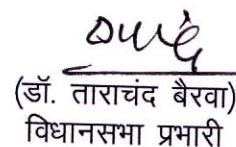 (डॉ. ताराचंद बैरवा)
विधानसभा प्रभारी